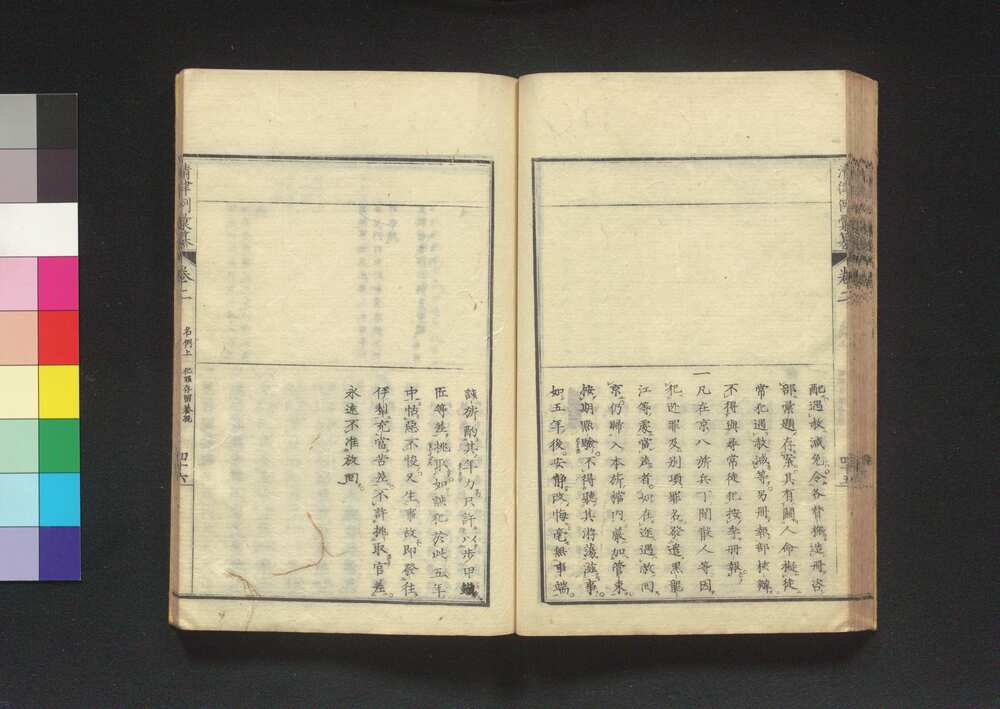 配遇赦減免令各督撫造冊咨
部彙題存案其有關人命擬徒
常犯遇赦減等另冊報部核辦
不得與尋常徒犯按季冊報
一凡在京八旂兵丁閒散人等因
犯逆罪及別項罪名發遣黑龍
江等處當差者如在逢遇赦回
京仍歸入本旂檔內嚴加管束
按期點驗不得聽其潜滋事
如五年後安静改悔毫無事端
該旂酌其年力只許以步甲
匠等差挑取如該犯於此五年
中怙惡不悛又生事故即發往
伊犁充當苦差不許挑取官差
永遠不准放回
清律例彙纂
卷二
名例上
犯罪存留養親
四十六
清律例彙纂
卷二